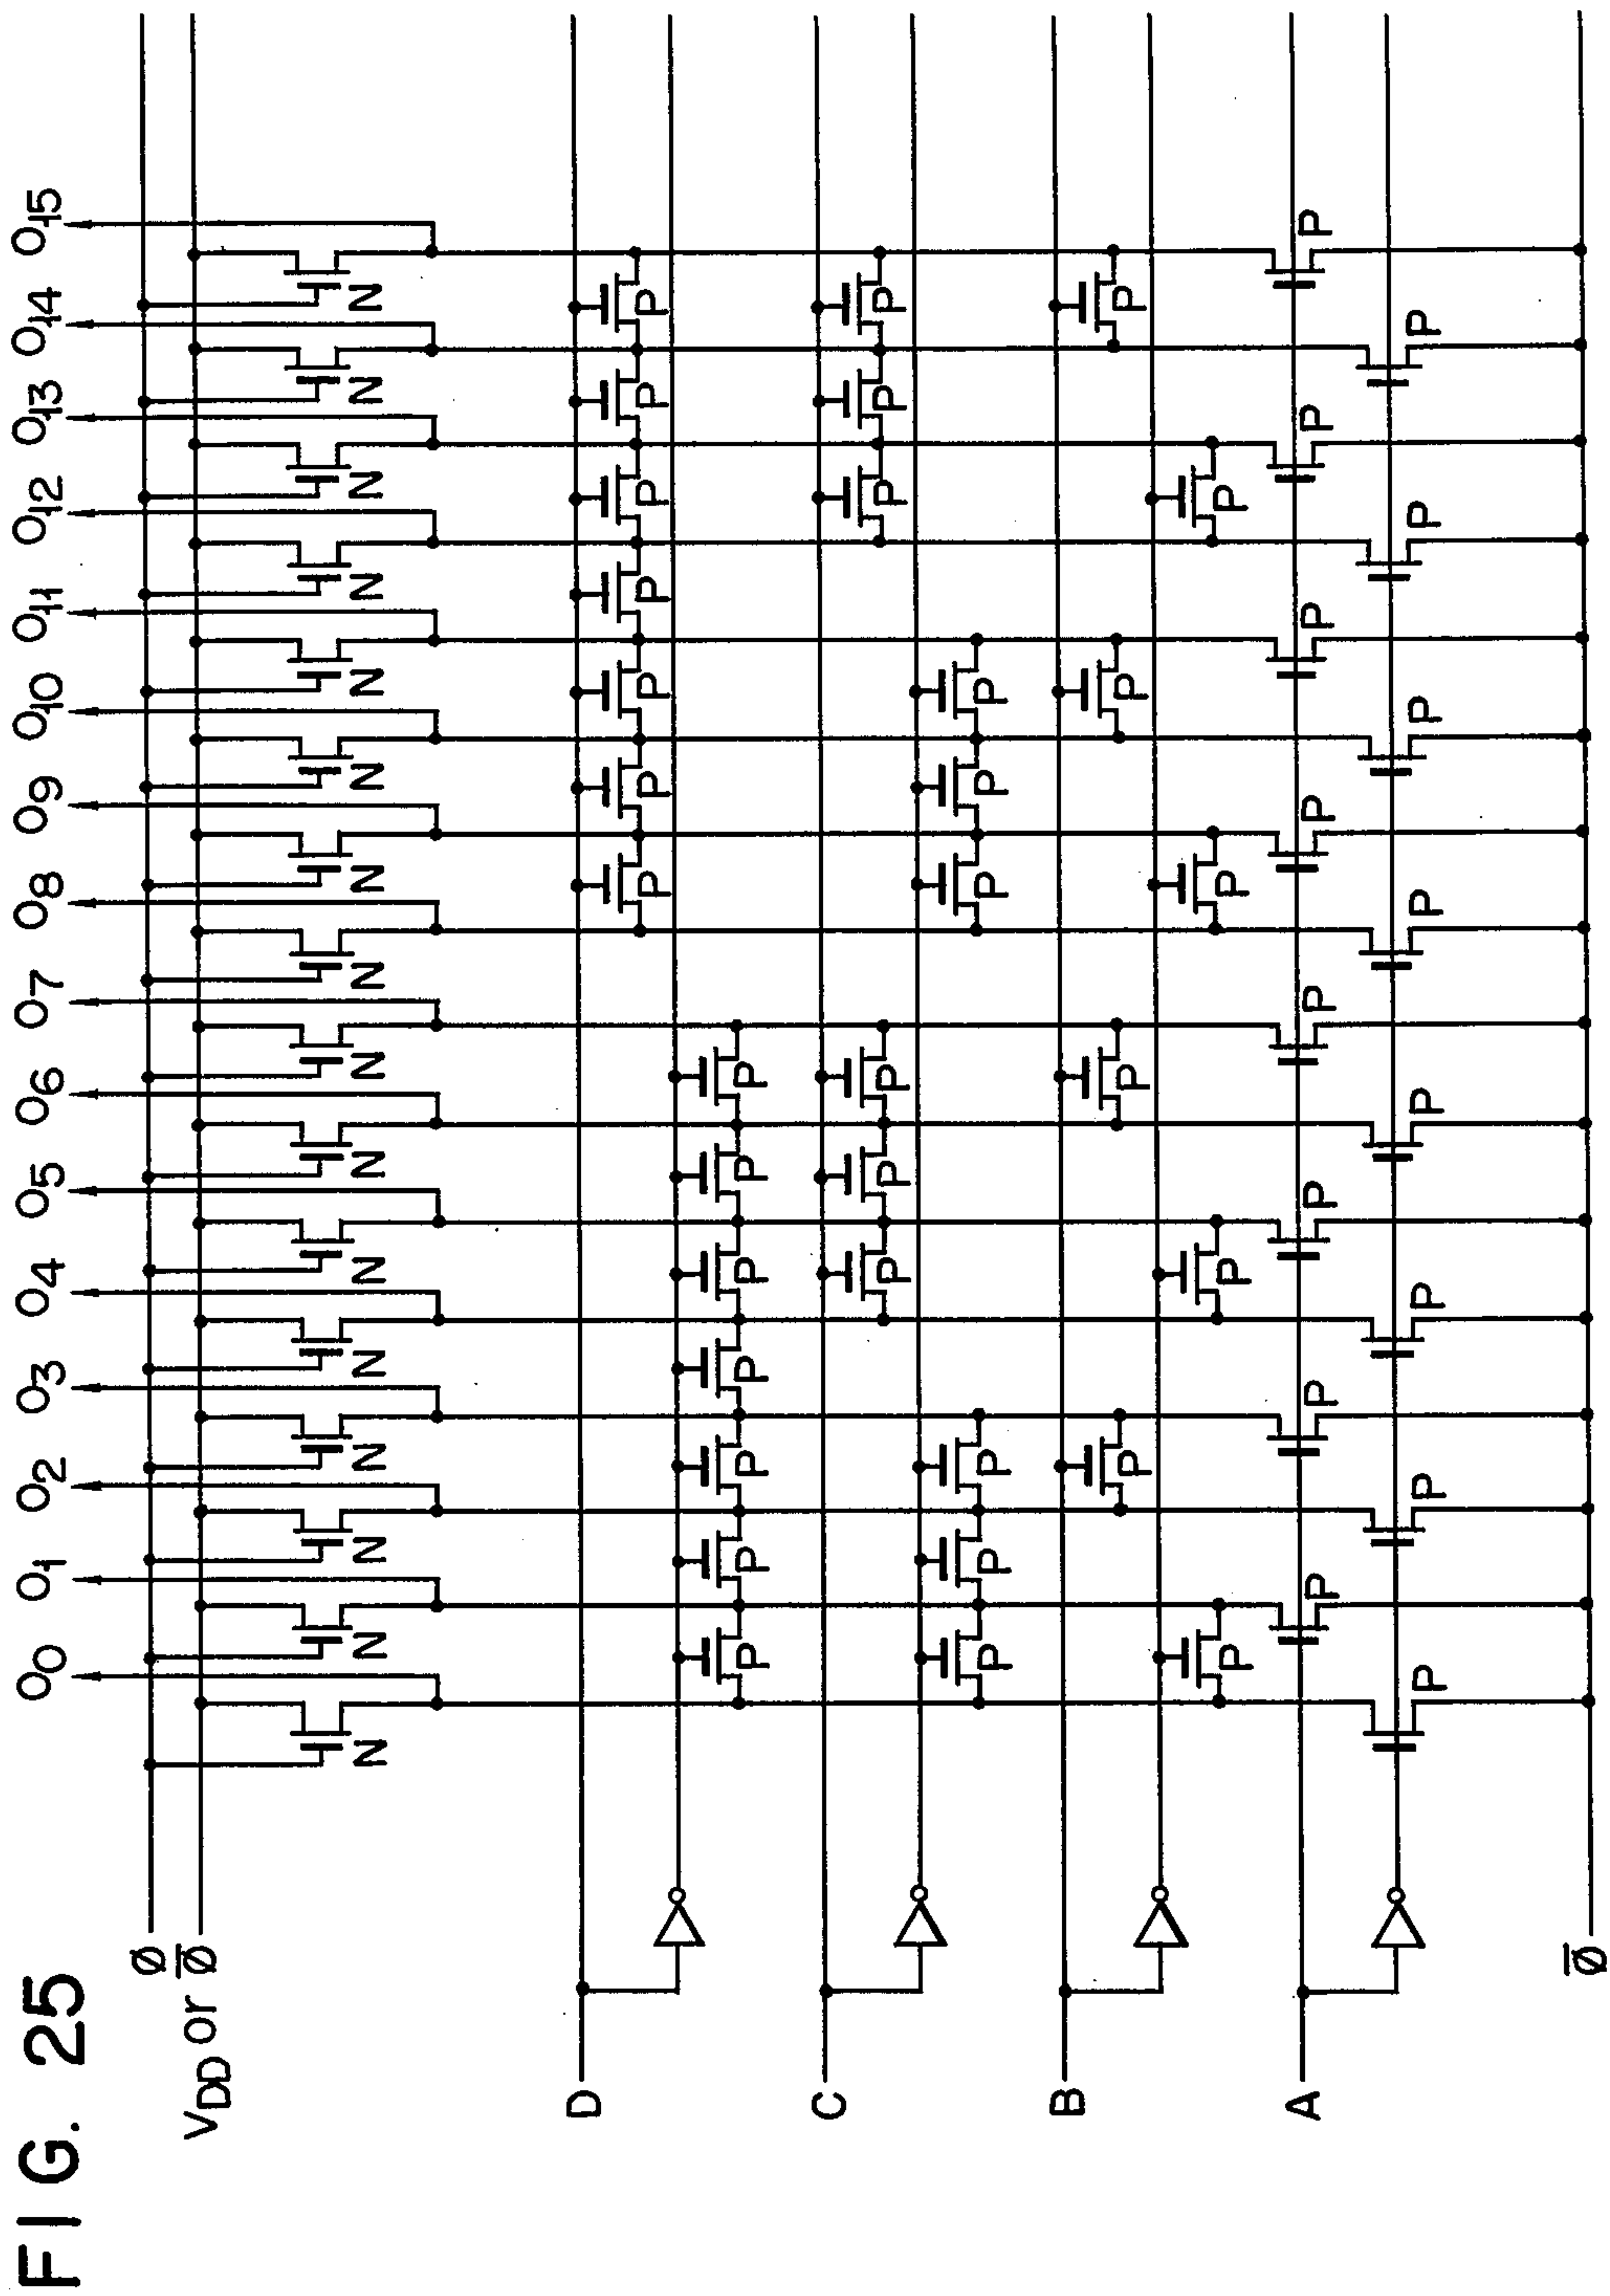 FIG. 25
O0 O1 O2 O3 O4 O5 O6 O7 O8 O9 O10 O11 O12 O13 O14 O15
Ø
VDD or Ø̅
N N N N N N N N N N N N N N N N
D
P P P P P P P
P P P P P P P
C
P P P P P P
P P P P P P
B
P P P P
P P P P
A
P P P P P P P P
P P P P P P P P
Ø̅